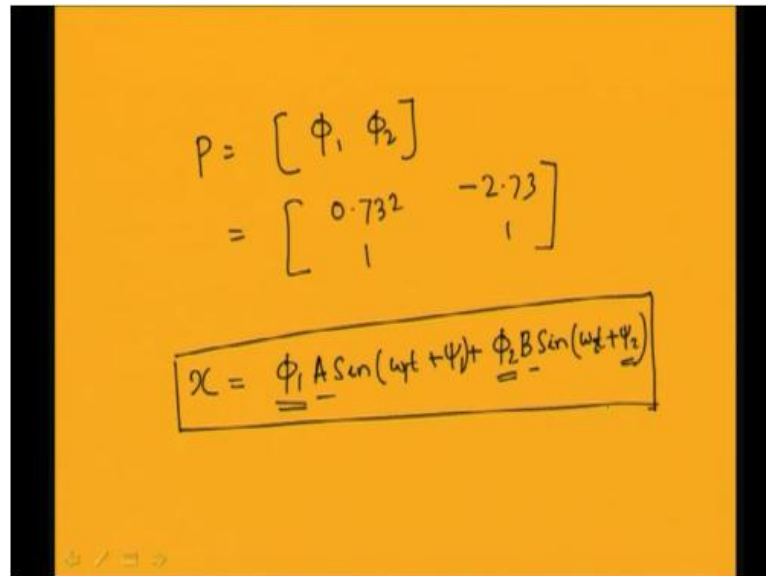 P = [ ϕ₁ ϕ₂ ]
= [ 0.732 -2.73
1 1 ]
x = ϕ₁ A Sin(ω₁t + ψ₁) + ϕ₂ B Sin(ω₂t + ψ₂)